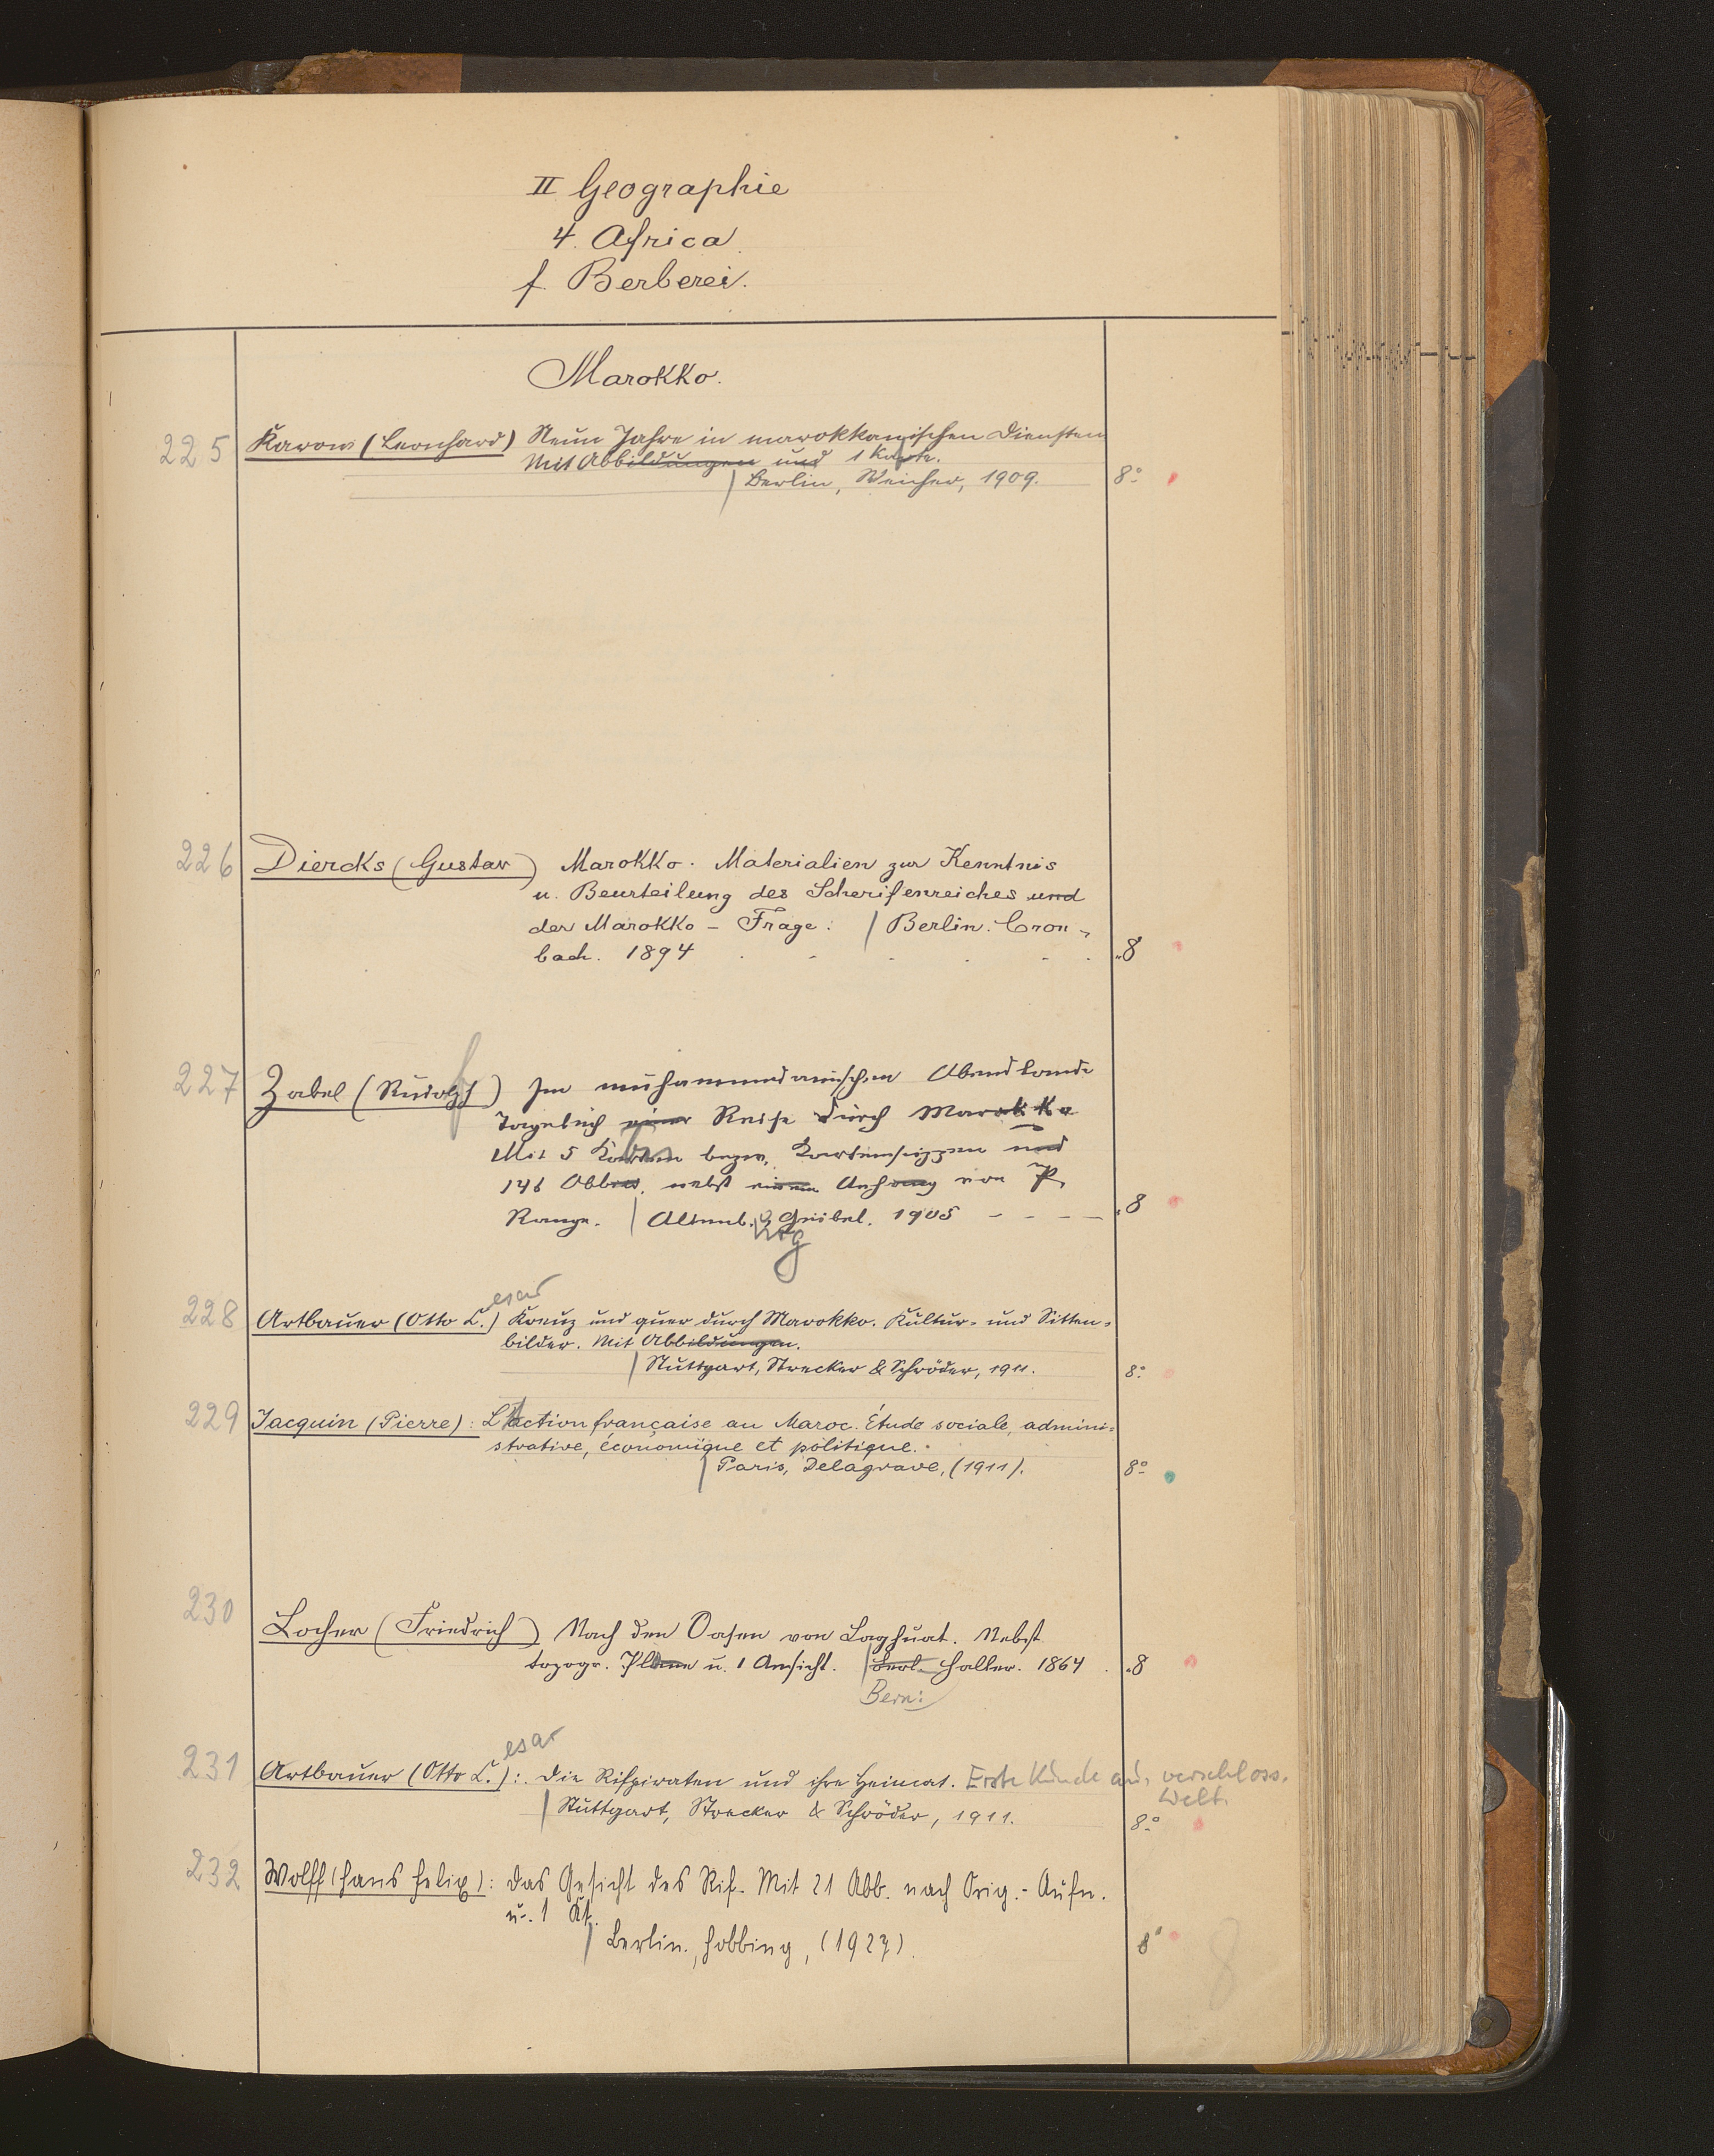 II Geographie
4. Africa
f. Berberei.
Marokko.
225 Karow (Leonhard) Neun Jahre in marokkanischen Diensten
Mit Abbildungen und 1 Karte.
Berlin, Weicher, 1909. 8°
226 Diercks (Gustav) Marokko. Materialien zur Kenntnis
u. Beurteilung des Scherifenreiches und
der Marokko-Frage. / Berlin. Cron-
bach. 1894 8°
227 Zabel (Rudolf) Im muhammedanischen Abendlande
Tagebuch einer Reise durch Marokko
Mit 5 Karten bezw. Kartenskizzen und
146 Abb. nebst einem Anhang von P.
Range. / Altenb. Geibel. 1905 8
228 Artbauer (Otto C.) Kreuz und quer durch Marokko. Kultur- und Sitten-
esar
bilder. Mit Abbildungen.
/ Stuttgart, Strecker & Schröder, 1911. 8°
229 Jacquin (Pierre): L'action française au Maroc. Étude sociale, admini-
strative, économique et politique.
/ Paris, Delagrave, (1911). 8°
230 Locher (Friedrich) Nach den Oasen von Laghuat. Nebst
topogr. Plane u. 1 Ansicht. / Berl. Haller. 1864 8
Bern:
esar
231 Artbauer (Otto C.): Die Rifpiraten und ihre Heimat. Erste Kunde aus verschloss.
Welt.
/ Stuttgart, Strecker & Schröder, 1911. 8°
232 Wolff (Hans Felix): Das Gesicht des Rif. Mit 21 Abb. nach Orig.-Aufn.
u. 1 Kt.
/ Berlin, Hobbing, (1927). 8°
8